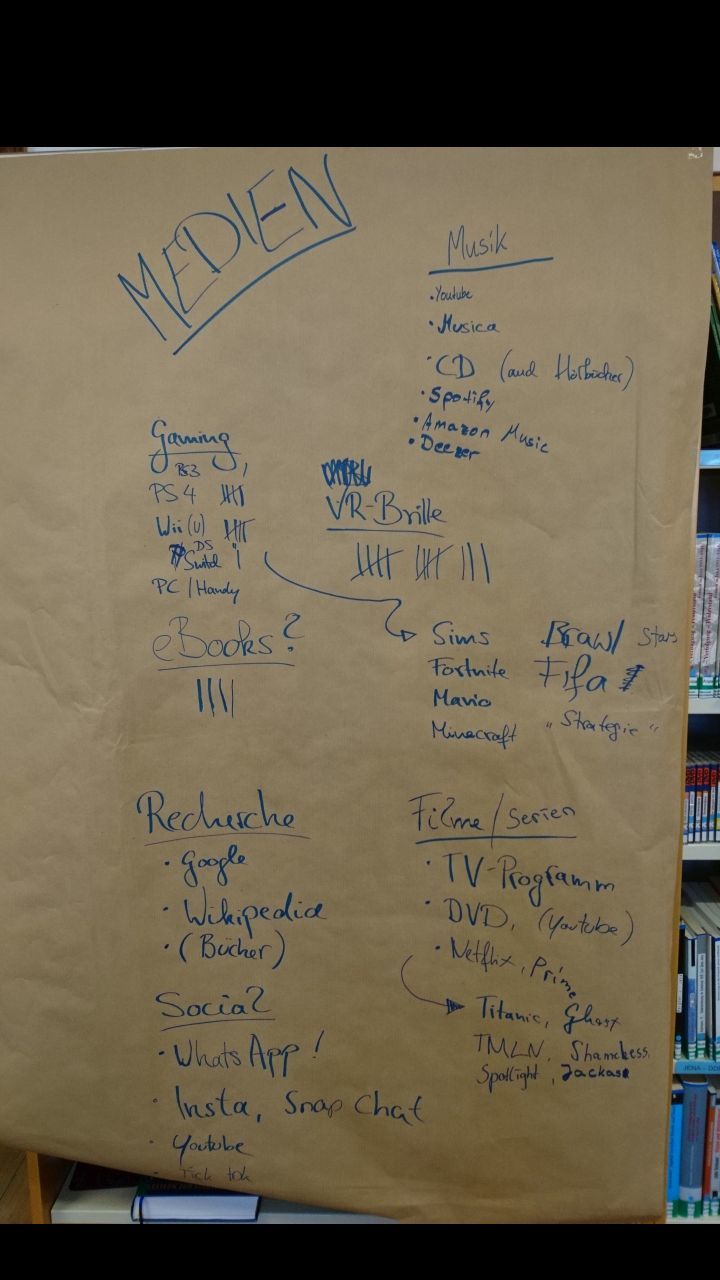 MEDIEN
Musik
• Youtube
• Musica
• CD (und Hörbücher)
• Spotify
• Amazon Music
• Deezer
Gaming
PS3
PS4
Wii (U)
DS
Switch
PC / Handy
VR-Brille
eBooks?
Sims
Fortnite
Mario
Minecraft
Brawl Stars
Fifa
"Strategie"
Recherche
• Google
• Wikipedia
• (Bücher)
Social
• WhatsApp!
• Insta, Snap Chat
• Youtube
• Tick tok
Filme / Serien
• TV-Programm
• DVD, (Youtube)
• Netflix, Prime
Titanic, Ghost
TMLN, Shameless
Spotlight, Jackass
JENA - DDR